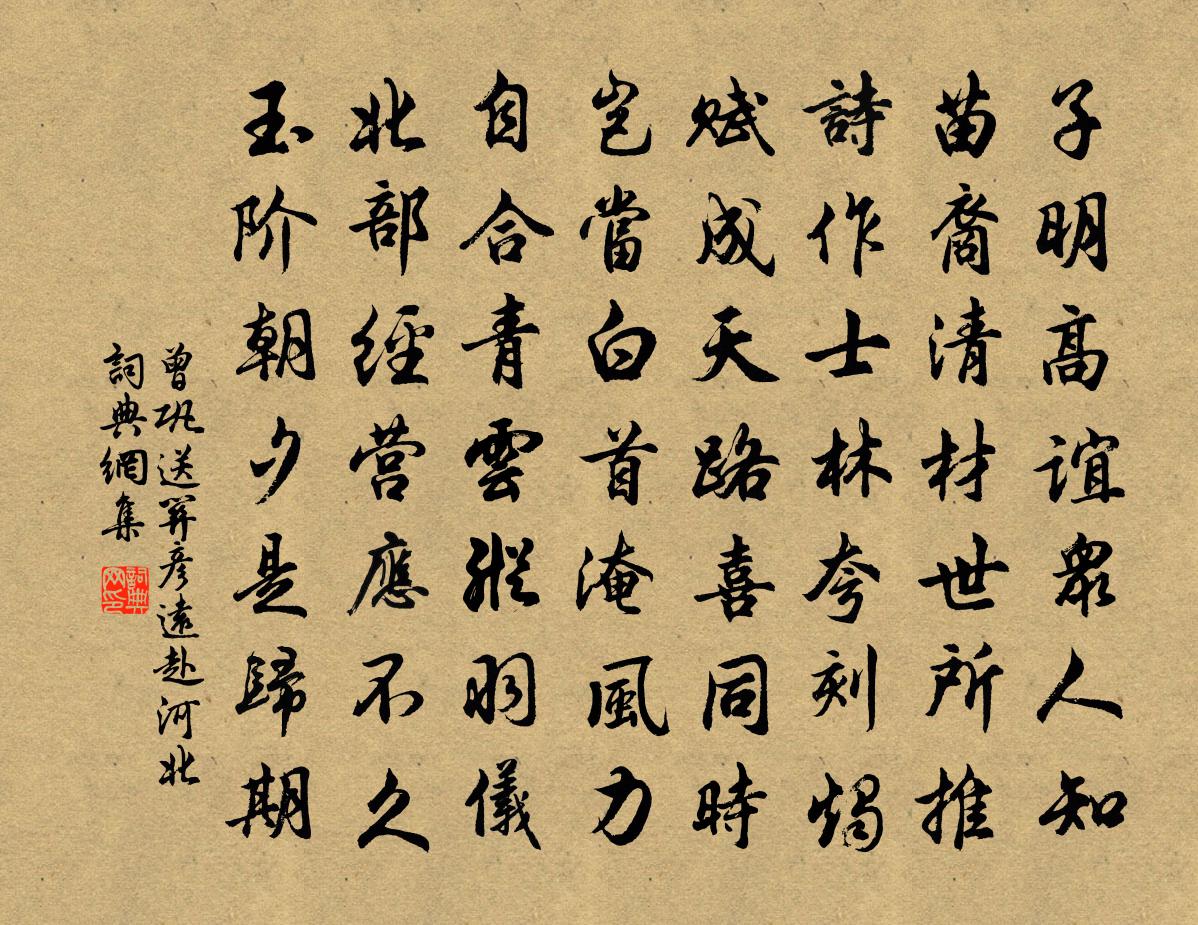 子明高誼眾人知
苗裔清材世所推
詩作士林夸刻燭
賦成天路喜同時
豈當白首淹風力
自合青雲縱羽儀
北部經营應不久
玉阶朝夕是歸期
曾巩送關彦遠赴河北
詞典網集
詞典网印